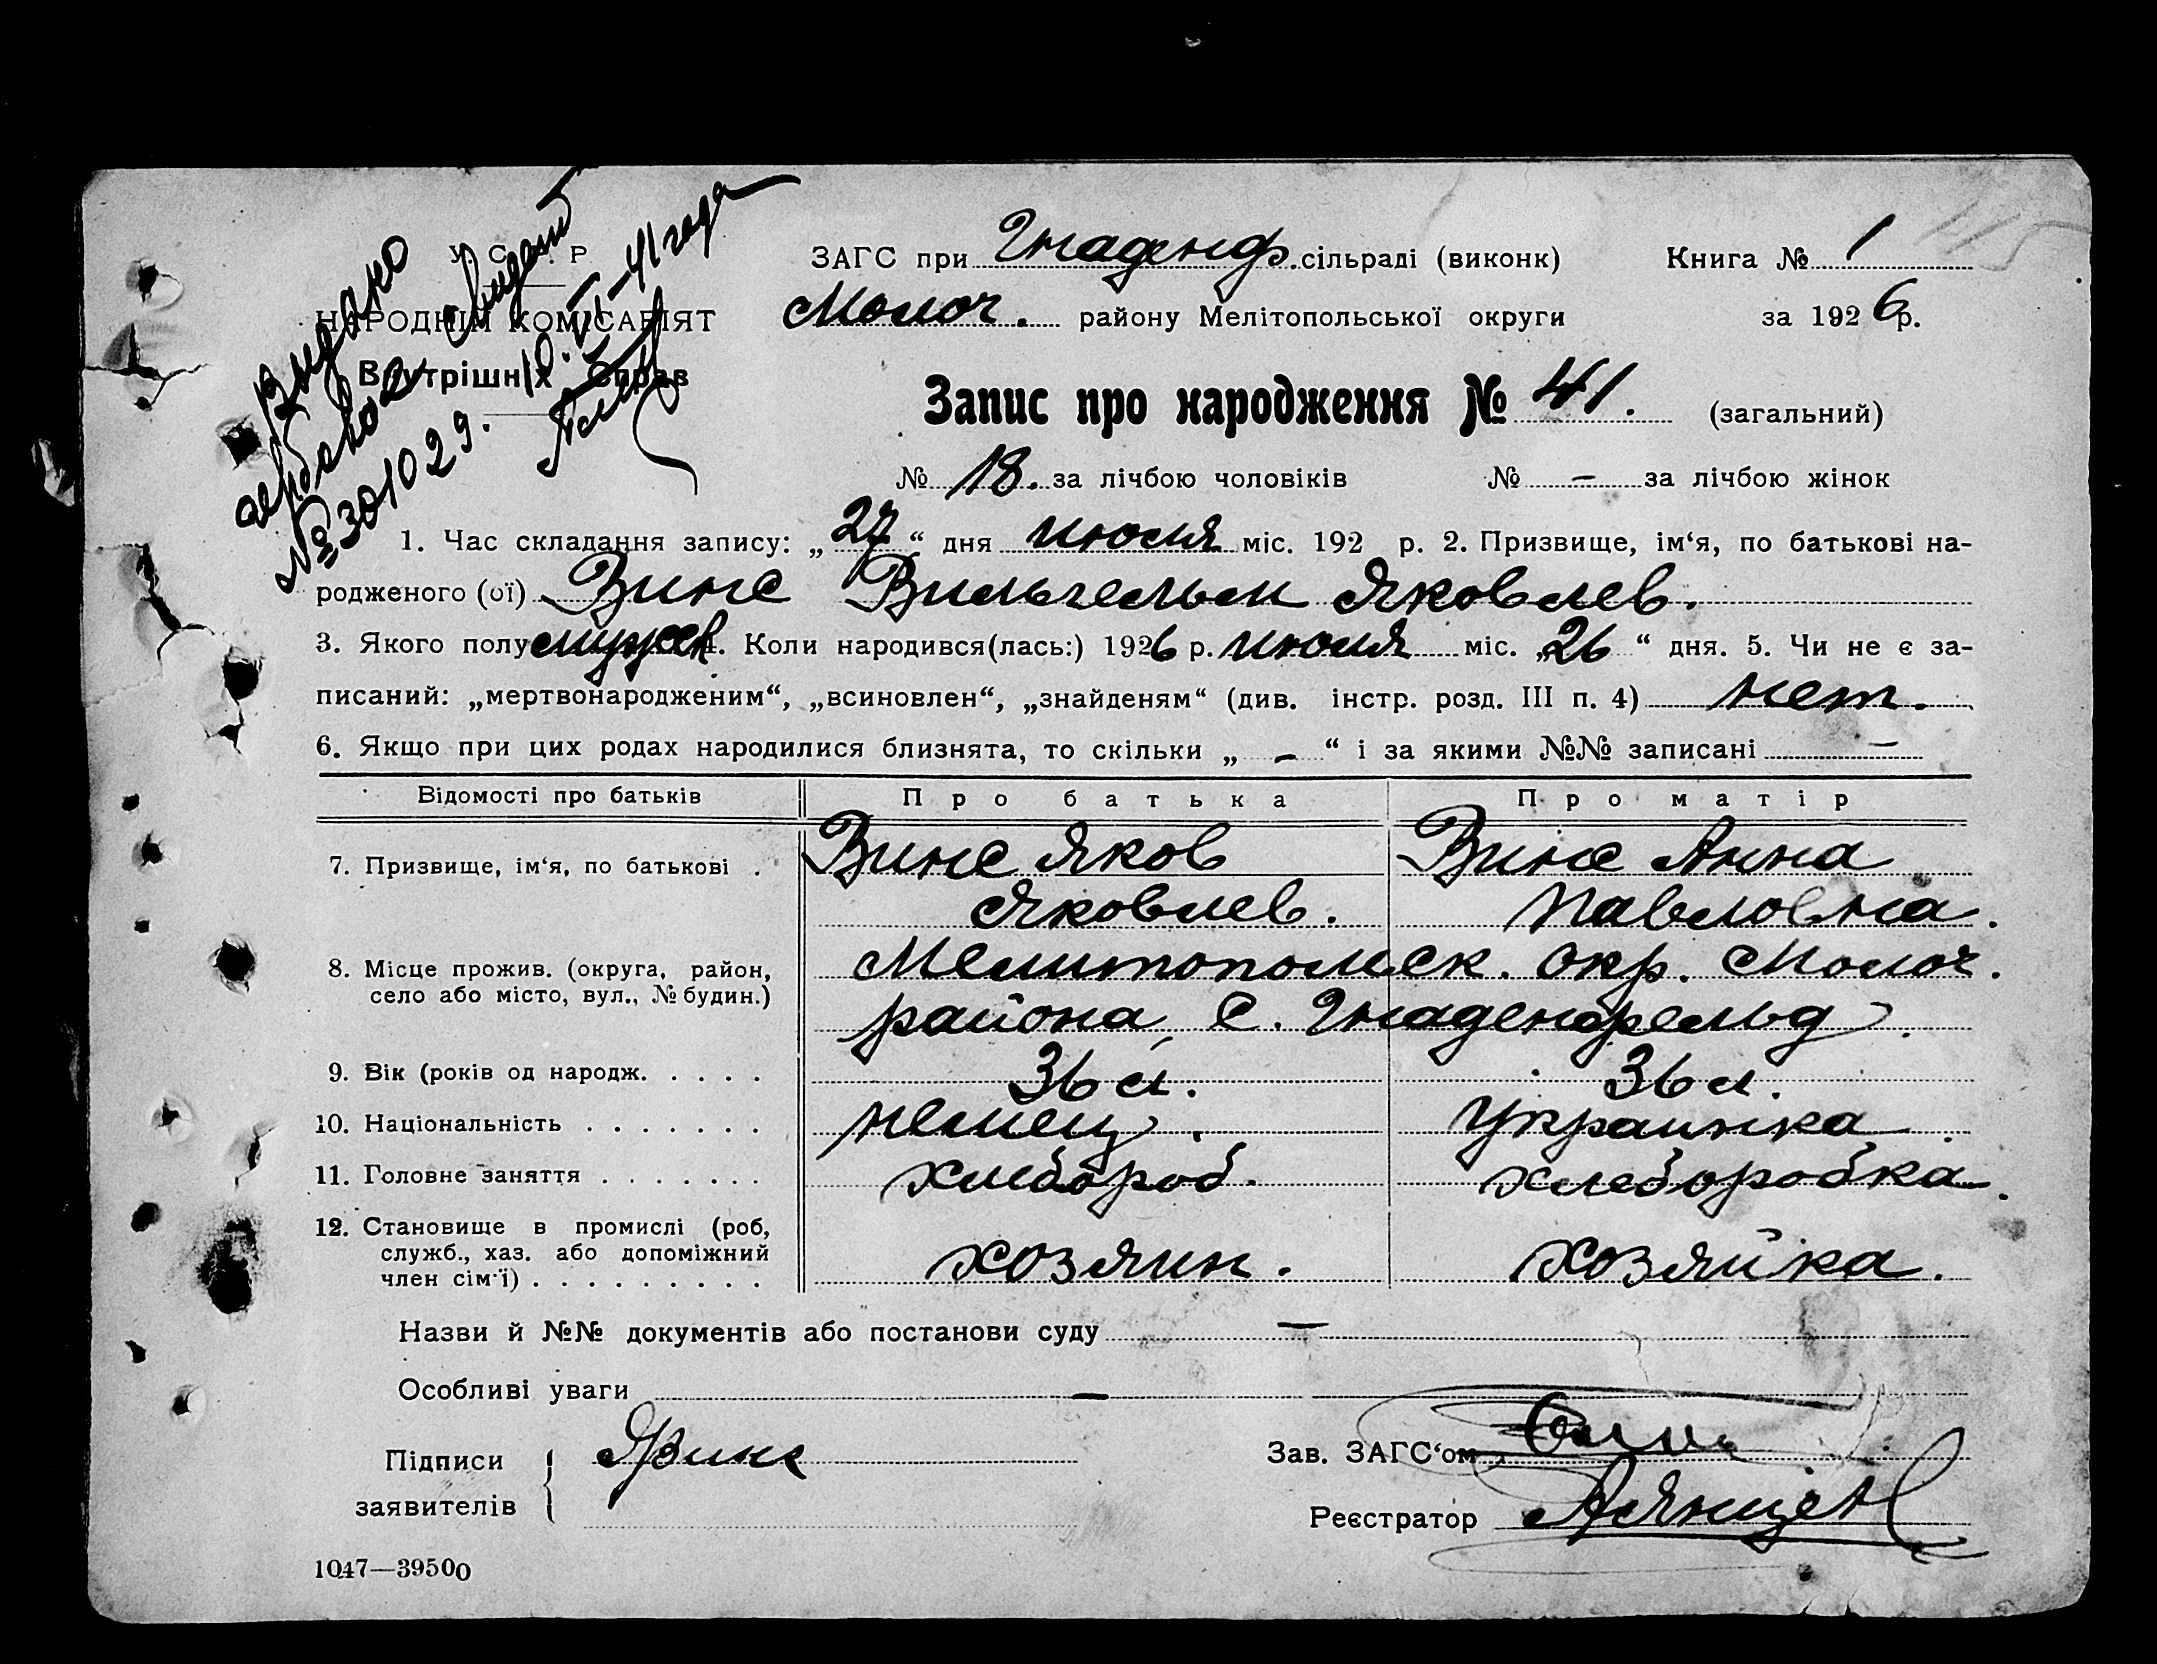 Видано
дубликат
№ 301029. 10.VI–41 года
У. С. Р. Р
НАРОДНІЙ КОМІСАРІЯТ
Внутрішніх Справ
ЗАГС при Гнаденф. сільраді (виконк) Книга № 1
Молоч. району Мелітопольської округи за 1926 р.
Запис про народження № 41. (загальний)
№ 18. за лічбою чоловіків № – за лічбою жінок
1. Час складання запису: „27“ дня июля міс. 192 р. 2. Призвище, ім‘я, по батькові на-
родженого (ої) Винс Вильгельм Яковлев.
3. Якого полу мужск. 4. Коли народився(лась:) 1926 р. июля міс. „26“ дня. 5. Чи не є за-
писаний: „мертвонародженим“, „всиновлен“, „знайденям“ (див. інстр. розд. III п. 4) нет.
6. Якщо при цих родах народилися близнята, то скільки „ – “ і за якими №№ записані –
Відомості про батьків Про батька Про матір
7. Призвище, ім‘я, по батькові . Винс Яков Винс Анна
Яковлев. Павловна.
8. Місце прожив. (округа, район, село або місто, вул., № будин.) Мелитопольск. окр. Молоч.
района, с. Гнаденфельд.
9. Вік (років од народж. . . . . 36 л. 36 л.
10. Національність . . . . . . . немец. Украинка.
11. Головне заняття . . . . . . . хлебороб. хлеборобка.
12. Становище в промислі (роб,
служб., хаз. або допоміжний
член сім‘ї) . . . . . . . . . хозяин. хозяйка.
Назви й №№ документів або постанови суду –
Особливі уваги –
Підписи
заявителів
ЯВинс
Зав. ЗАГС‘ом
Реєстратор
1047—39500